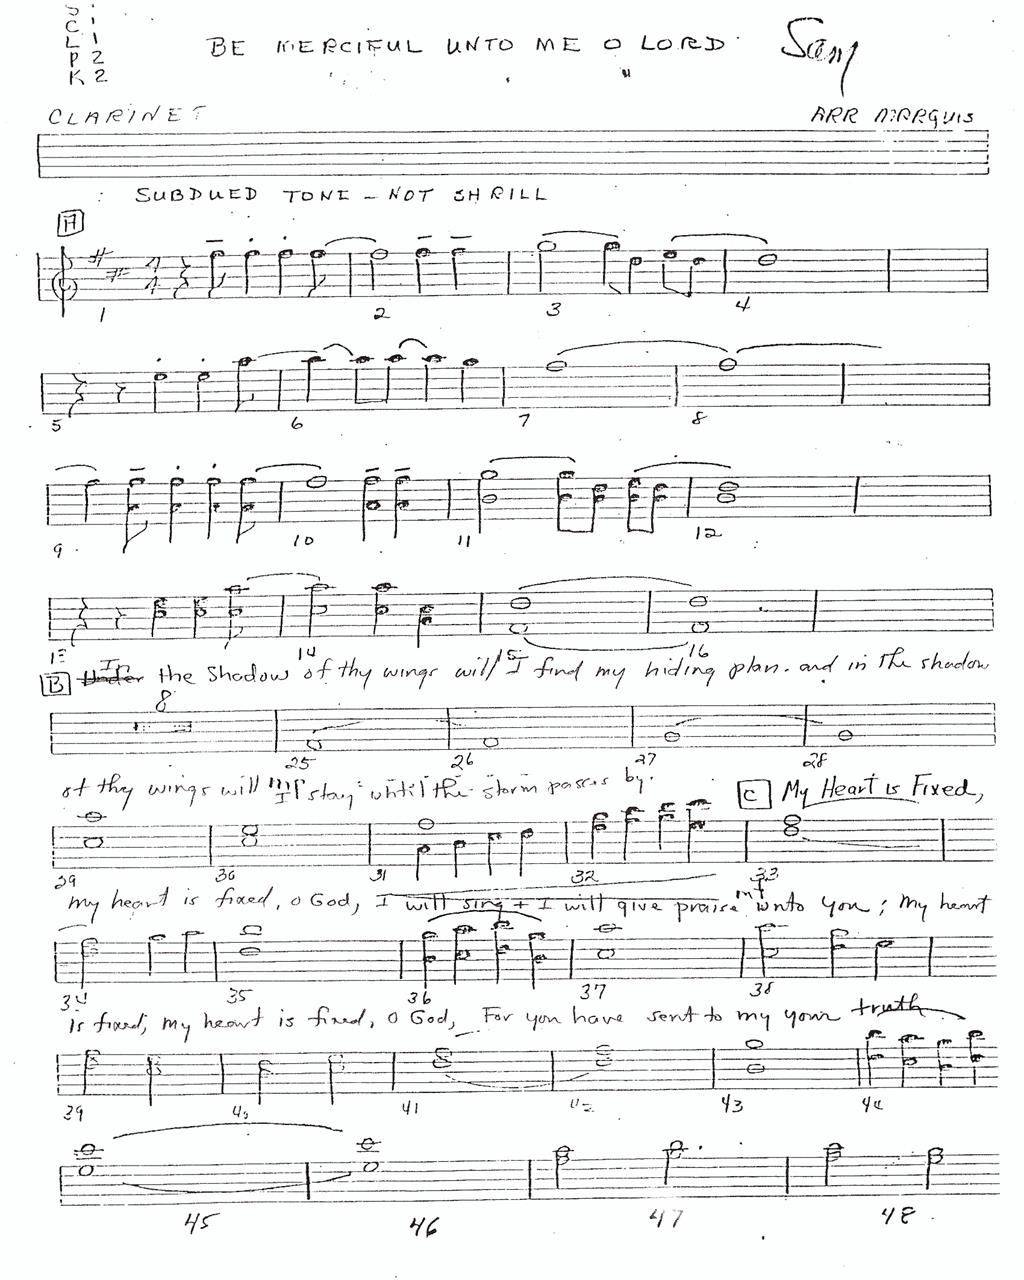 S 1
C 1
L 1
P 2
K 2
BE MERCIFUL UNTO ME O LORD
CLARINET
ARR MARQUIS
SUBDUED TONE - NOT SHRILL
A
1 2 3 4
5 6 7 8
9 10 11 12
13 14 15 16
B In the Shadow of thy wings will I find my hiding plan. and in the shadow
8
25 26 27 28
of thy wings will I stay until the storm passes by.
C My Heart is Fixed,
29 30 31 32 33
my heart is fixed, O God, I will sing + I will give praise unto you; my heart
34 35 36 37 38
is fixed, my heart is fixed, O God, For you have sent to my your truth
39 40 41 42 43 44
45 46 47 48